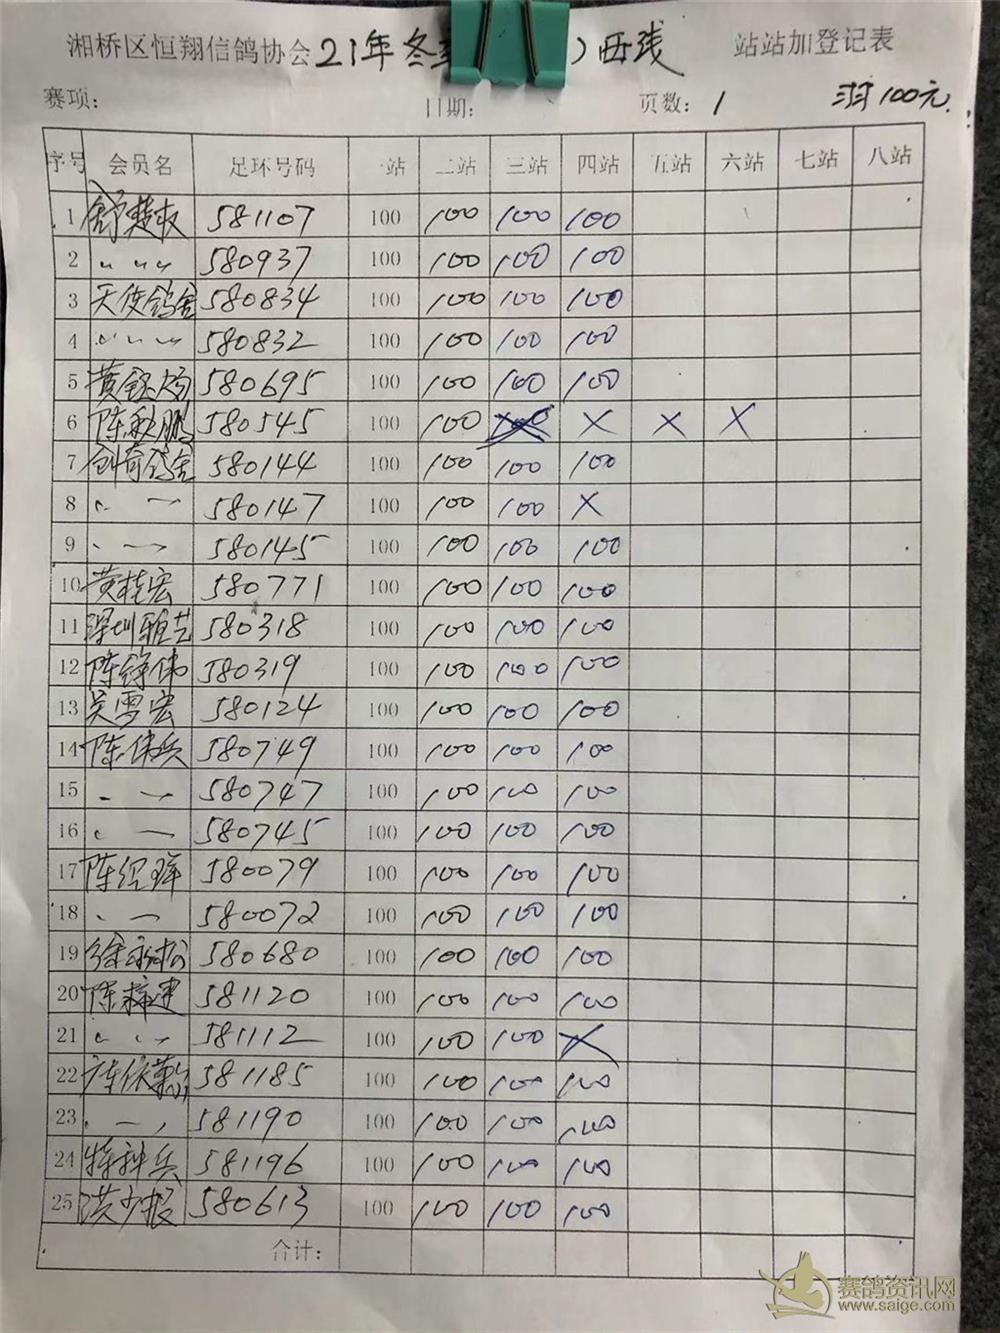 湘桥区恒翔信鸽协会 21年冬 ) 西线 站站加登记表
赛项: 日期: 页数: 1 羽100元.
序号 会员名 足环号码 一站 二站 三站 四站 五站 六站 七站 八站
1 舒楚 581107 100 100 100 100
2 〃 〃 〃 580937 100 100 100 100
3 天使鸽舍 580834 100 100 100 100
4 〃 〃 〃 580832 100 100 100 100
5 黄 580695 100 100 100 100
6 陈秋鹏 580545 100 100 × × × ×
7 创奇鸽舍 580144 100 100 100 100
8 〃 580147 100 100 100 ×
9 〃 580145 100 100 100 100
10 黄桂宏 580771 100 100 100 100
11 深圳雅芸 580318 100 100 100 100
12 陈锋伟 580319 100 100 100 100
13 吴雪宏 580124 100 100 100 100
14 陈伟兵 580749 100 100 100 100
15 〃 580747 100 100 100 100
16 〃 580745 100 100 100 100
17 陈 580079 100 100 100 100
18 〃 580072 100 100 100 100
19 徐永松 580680 100 100 100 100
20 陈梓建 581120 100 100 100 100
21 〃 〃 581112 100 100 100 ×
22 581185 100 100 100 100
23 〃 581190 100 100 100 100
24 特种兵 581196 100 100 100 100
25 洪少 580613 100 100 100 100
合计:
赛鸽资讯网
www.saige.com